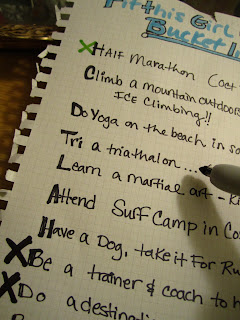 Fit this Girl
Bucket
X Half Marathon (Oct
Climb a mountain outdoors
ICE Climbing!!
Do Yoga on the beach in
Tri a triathalon...
Learn a martial art -
Attend Surf Camp in
Have a Dog, take it For
X Be a trainer & coach to
X Do a